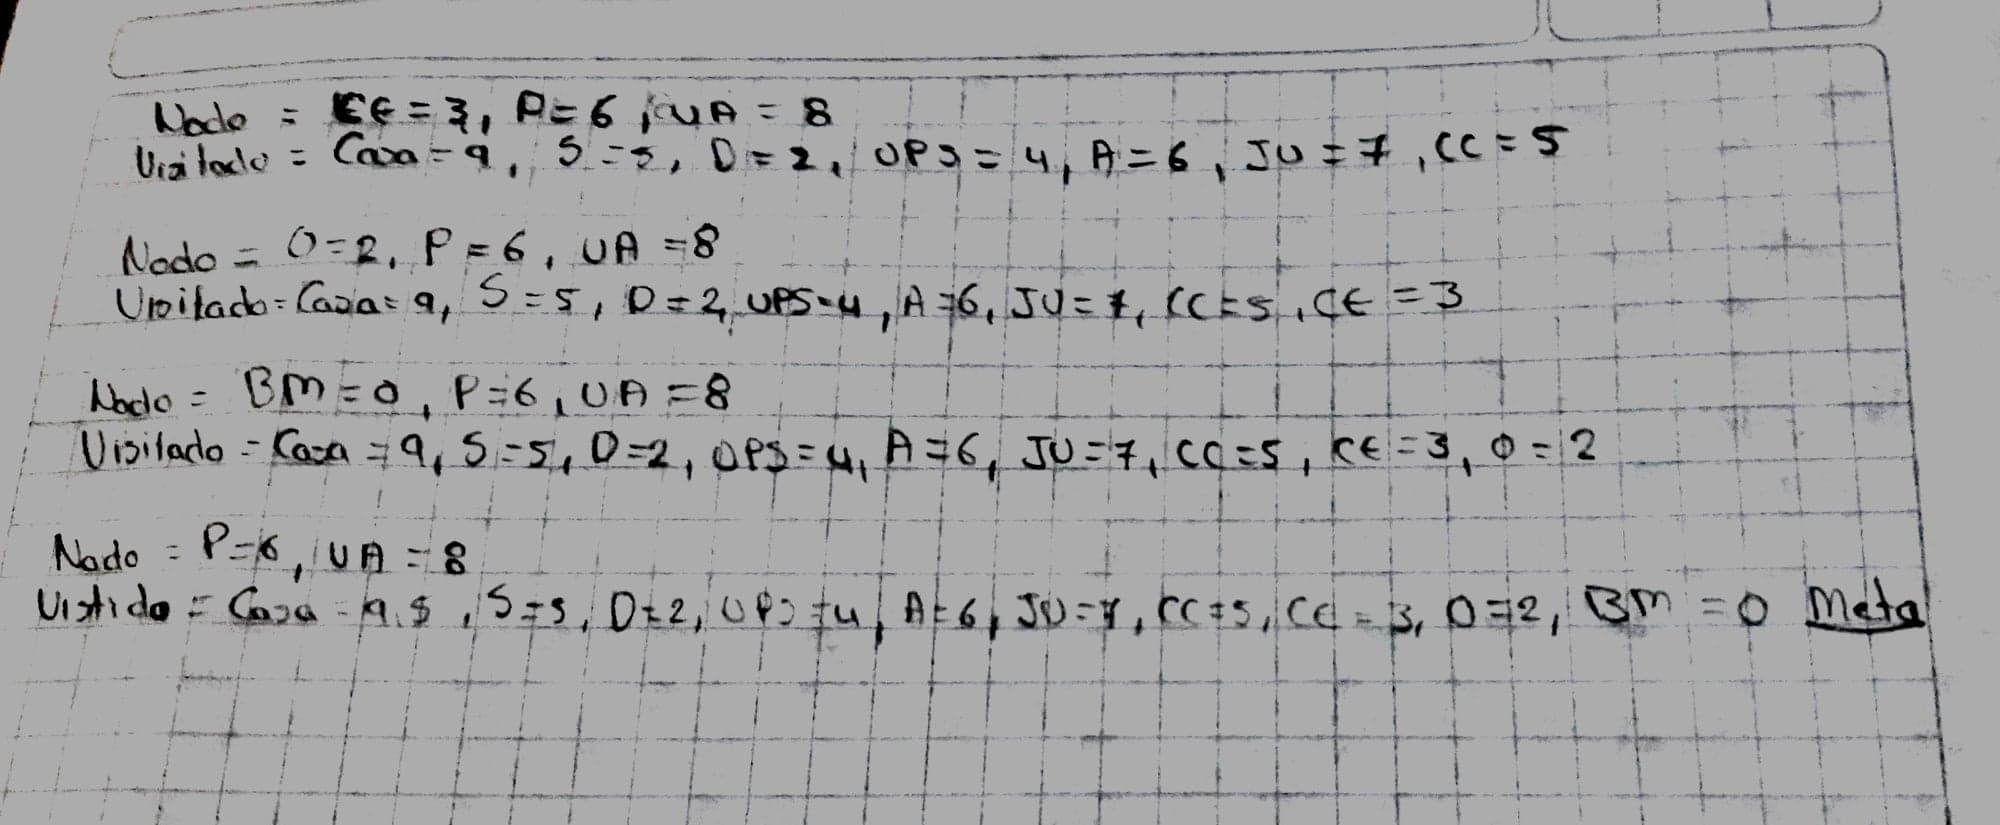 Nodo = CE = 3, P = 6, UA = 8
Visitado = Casa = 9, S = 5, D = 2, UPS = 4, A = 6, JU = 7, CC = 5
Nodo = O = 2, P = 6, UA = 8
Visitado = Casa = 9, S = 5, D = 2, UPS = 4, A = 6, JU = 7, CC = 5, CE = 3
Nodo = BM = 0, P = 6, UA = 8
Visitado = Casa = 9, S = 5, D = 2, UPS = 4, A = 6, JU = 7, CC = 5, CE = 3, O = 2
Nodo = P = 6, UA = 8
Vistido = Casa = 9, S = 5, D = 2, UPS = 4, A = 6, JU = 7, CC = 5, CE = 3, O = 2, BM = 0 Meta